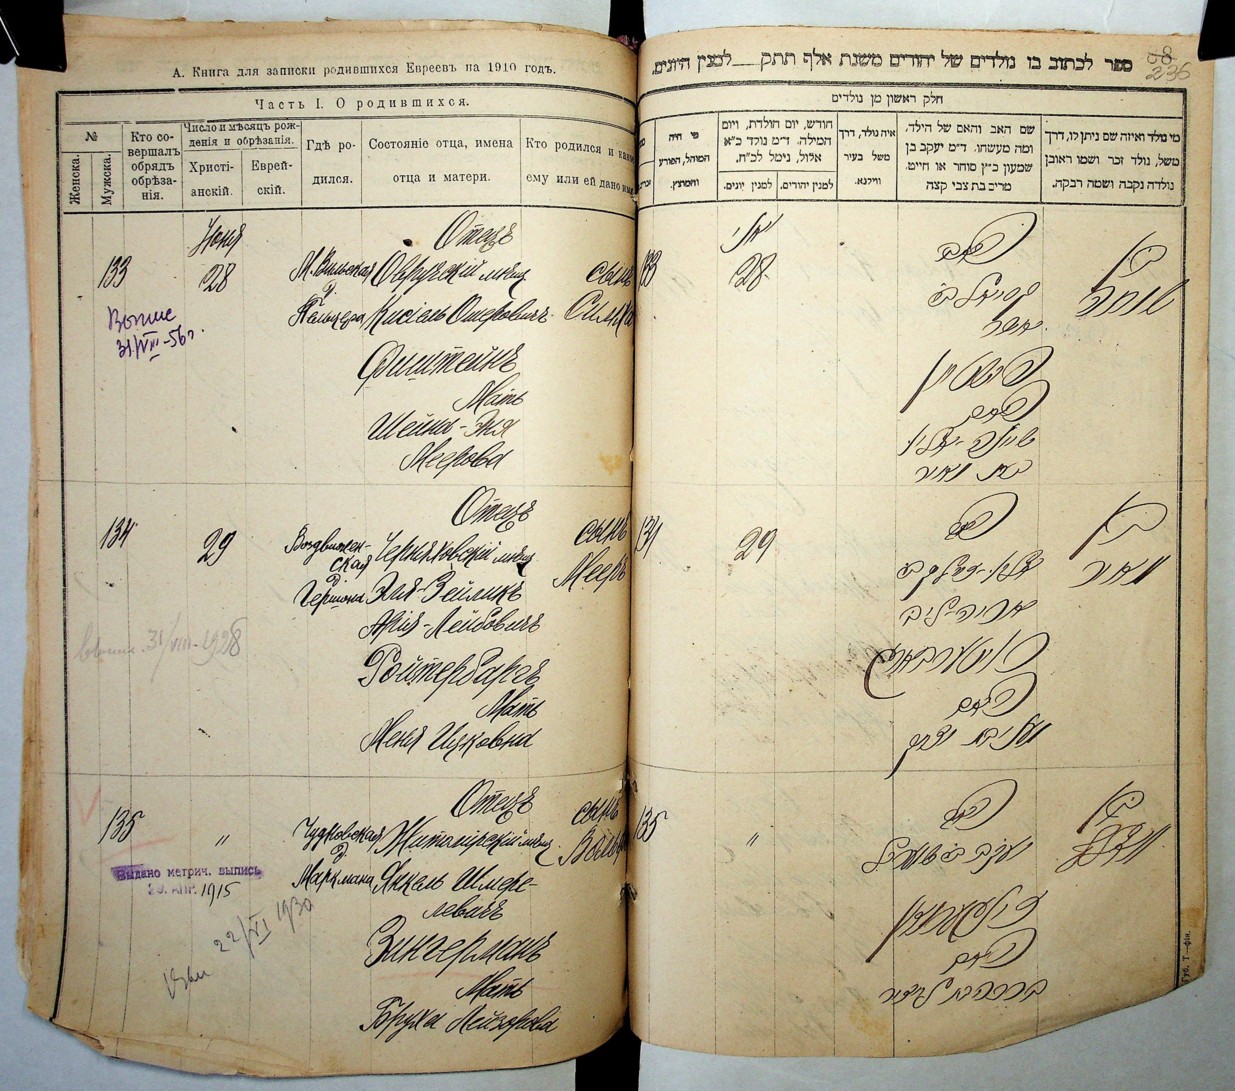 А. Книга для записки родившихся Евреевъ на 1910 годъ.
Часть I. О родившихся.
№
Женска.
Мужска.
Кто со-
вершалъ
обрядъ
обрѣза-
нія.
Число и мѣсяцъ рож-
денія и обрѣзанія.
Христі-
анскій.
Еврей-
скій.
Гдѣ ро-
дился.
Состояніе отца, имена
отца и матери.
Кто родился и какое
ему или ей дано имя
133
Іюня
28
М. Вильская
д.
Пельцера
Отецъ
Овручскій мѣщ
Кисіель Ошеровичъ
Фиштейнъ
Мать
Шейна-Эля
Меерова
сынъ
Симха
Выпис
31/VIII-56 г.
134
29
Воздвижен-
ская
д.
Гершона
Отецъ
Черняховскій мѣщ
Эля-Зейликъ
Арія-Лейбовичъ
Ройтербаргъ
Мать
Меня Ицковна
сынъ
Мееръ
31/VIII-1928
135
"
Чудновская
д.
Маркмана
Отецъ
Житомірскій мѣщ
Янкель Шмере-
левичъ
Зингерманъ
Мать
Бруха Лейзорова
сынъ
Выдано метрич. выпись
23. АПР. 1915
22/VI 1930
ספר לכתוב בו נולדים של יהודים משנת אלף תתק__ למנין היונים.
68
236
חלק ראשון מן נולדים
מי נולד ואיזה שם ניתן לו, דרך
משל, נולד זכר ושמו ראובן
נולדה נקבה ושמה רבקה.
שם האב והאם של הילד,
ומה מעשהו. ד״מ יעקב בן
שמעון כ״ץ סוחר או חיים.
מריב בת צבי קצה
איה נולד, דרך
משל בעיר
ווילנא.
חודש, יום הולדת, ויום
המילה. ד״מ נולד כ״א
אלול, נימל לכ״ח.
למנין יהודים.
למנין יונים.
מי היה
המוהל, הפורע
והמוצץ.
133
יוני
28
האב
אשר
פישטיין
האם
בת מאיר
בן
שמחה
134
29
האב
אריה-ליב
האם
בן
מאיר
135
"
האב
זינגערמאן
האם
בן